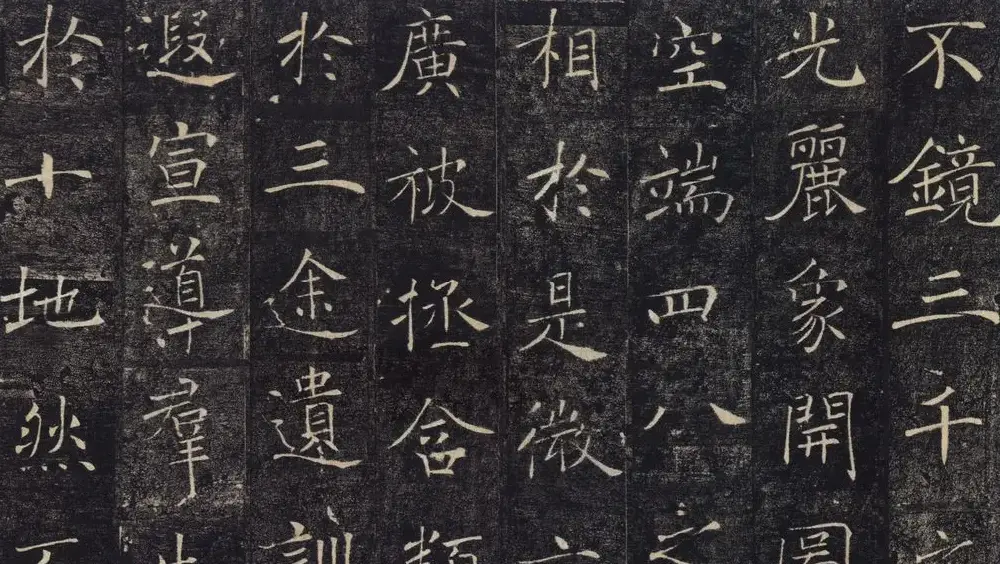 不鏡三千
光麗象開圖
空端四八之
相於是微
廣被拯含類
於三途遺訓
遐宣導羣
於十地然